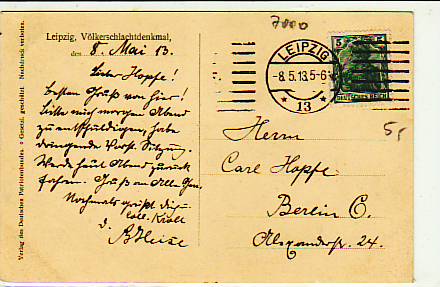 7000
Leipzig, Völkerschlachtdenkmal,
den 8. Mai 13.
Lieber Hopfe!
besten Gruß von hier!
bitte mich morgen Abend
zu entschuldigen, habe
dringende Vorst. Sitzung.
Werde heut Abend zurück
fahren. Gruß an Alle
Nochmals grüßt Dich
coll.
d.
LEIPZIG
-8.5.13.5-6
* 13 *
5 5
DEUTSCHES REICH
5,-
Herrn
Carl Hopfe
Berlin C.
Alexanderstr. 24.
Verlag des Deutschen Patriotenbundes. Gesetzl. geschützt. Nachdruck verboten.